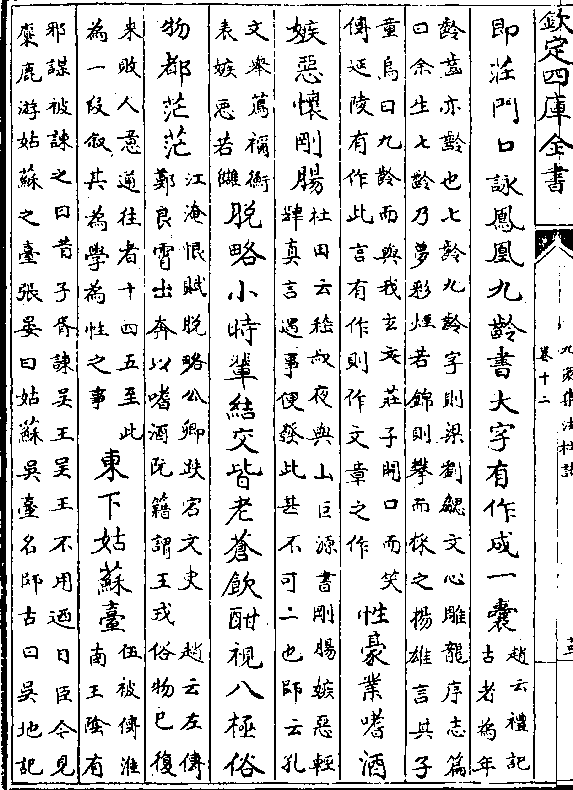 欽定四庫全書
卷十二
即莊門口詠鳳凰九齡書大字有作成一囊趙云禮記古者為年
齡齒亦齡也七齡九齡字則梁劉勰文心雕龍序志篇
曰余生七齡乃夢彩煙若錦則攀而採之揚雄言其子
童烏曰九齡而與我玄文莊子開口而笑
傳延陵有作此言有作則作文章之作
性豪業嗜酒
嫉惡懷剛腸杜田云嵇叔夜與山巨源書剛腸嫉惡輕
肆真言遇事便發此甚不可二也師云孔
文舉薦禰衡
表嫉惡若讎
脫略小時輩結交皆老蒼飲酣視八極俗
物都茫茫江淹恨賦脫略公卿跌宕文史
鄭良霄出奔以嗜酒阮籍謂王戎俗物已復
趙云左傳
來敗人意適往者十四五至此
為一段叙其為學為性之事
東下姑蘇臺伍被傳淮
南王陰有
邪謀被諫之曰昔子胥諫吳王吳王不用迺曰臣今見
麋鹿游姑蘇之臺張晏曰姑蘇吳臺名師古曰吳地記